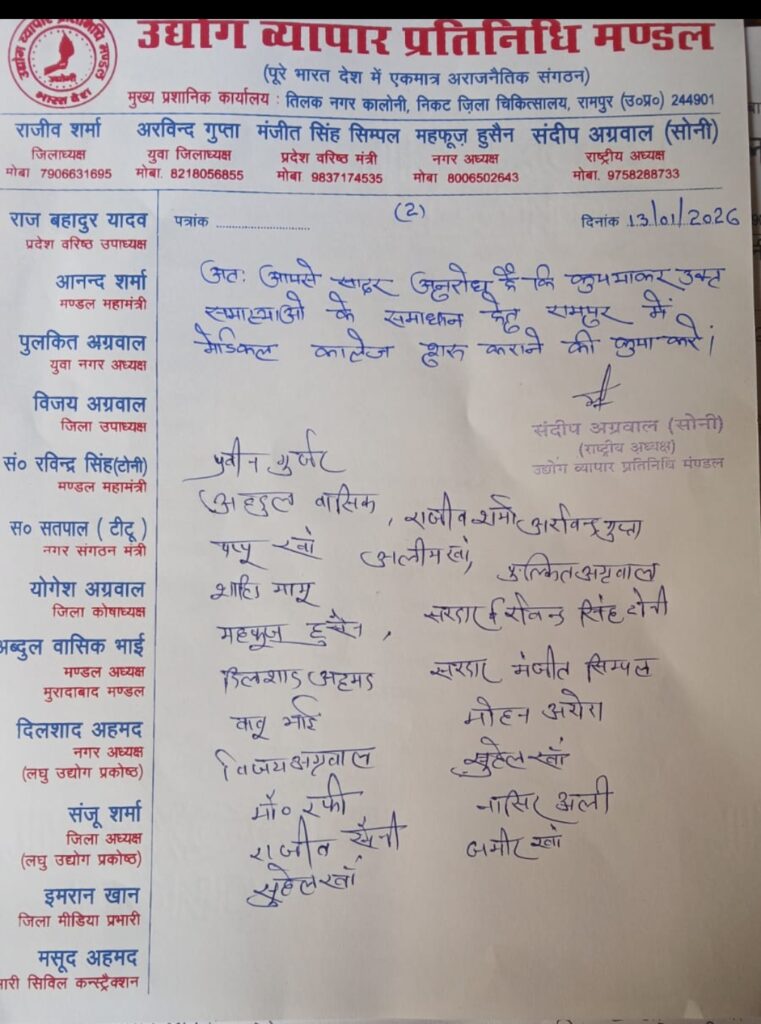 उद्योग व्यापार प्रतिनिधि मण्डल
उद्योग व्यापार प्रतिनिधि मण्डल
उद्योगी
भारत देश
(पूरे भारत देश में एकमात्र अराजनैतिक संगठन)
मुख्य प्रशानिक कार्यालय : तिलक नगर कालोनी, निकट ज़िला चिकित्सालय, रामपुर (उ०प्र०) 244901
राजीव शर्मा अरविन्द गुप्ता मंजीत सिंह सिम्पल महफूज़ हुसैन संदीप अग्रवाल (सोनी)
जिलाध्यक्ष युवा जिलाध्यक्ष प्रदेश वरिष्ठ मंत्री नगर अध्यक्ष राष्ट्रीय अध्यक्ष
मोबा 7906631695 मोबा. 8218056855 मोबा. 9837174535 मोबा. 8006502643 मोबा. 9758288733
पत्रांक (2) दिनांक 13/01/2026
राज बहादुर यादव
प्रदेश वरिष्ठ उपाध्यक्ष
आनन्द शर्मा
मण्डल महामंत्री
पुलकित अग्रवाल
युवा नगर अध्यक्ष
विजय अग्रवाल
जिला उपाध्यक्ष
सं० रविन्द्र सिंह(टोनी)
मण्डल महामंत्री
स० सतपाल ( टीटू )
नगर संगठन मंत्री
योगेश अग्रवाल
जिला कोषाध्यक्ष
अब्दुल वासिक भाई
मण्डल अध्यक्ष
मुरादाबाद मण्डल
दिलशाद अहमद
नगर अध्यक्ष
(लघु उद्योग प्रकोष्ठ)
संजू शर्मा
जिला अध्यक्ष
(लघु उद्योग प्रकोष्ठ)
इमरान खान
जिला मीडिया प्रभारी
मसूद अहमद
सिविल कन्स्ट्रैक्शन
अतः आपसे सादर अनुरोध है कि कृपयाकर उक्त
समास्याओ के समाधान हेतु रामपुर में
मेडिकल कालेज शुरू कराने की कृपा करे।
संदीप अग्रवाल (सोनी)
(राष्ट्रीय अध्यक्ष)
उद्योग व्यापार प्रतिनिधि मण्डल
प्रवीन गुर्जर
अब्दुल वासिक, राजीव शर्मा अरविन्द्र गुप्ता
पप्पू खां अलीम खां, पुल्कित अग्रवाल
मामू
महफूज हुसैन, सरदार रविन्द्र सिंह टोनी
दिलशाद अहमद सरदार मंजीत सिम्पल
बाबू भाई मोहन अरोरा
विजय अग्रवाल सुहेल खाँ
मौ० रफी नासिर अली
राजीव सैनी जमीर खां
सुहेल खाँ